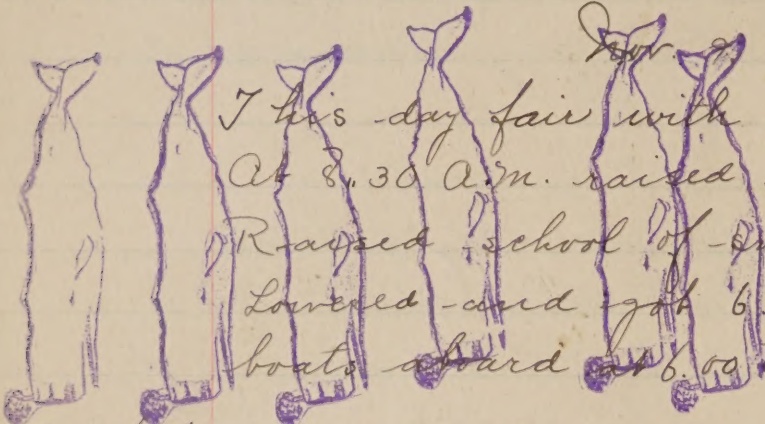 Nov.
This day fair with
At 8.30 A.M. raised
Raised school of
Lowered and got 6
boats aboard at 6.00